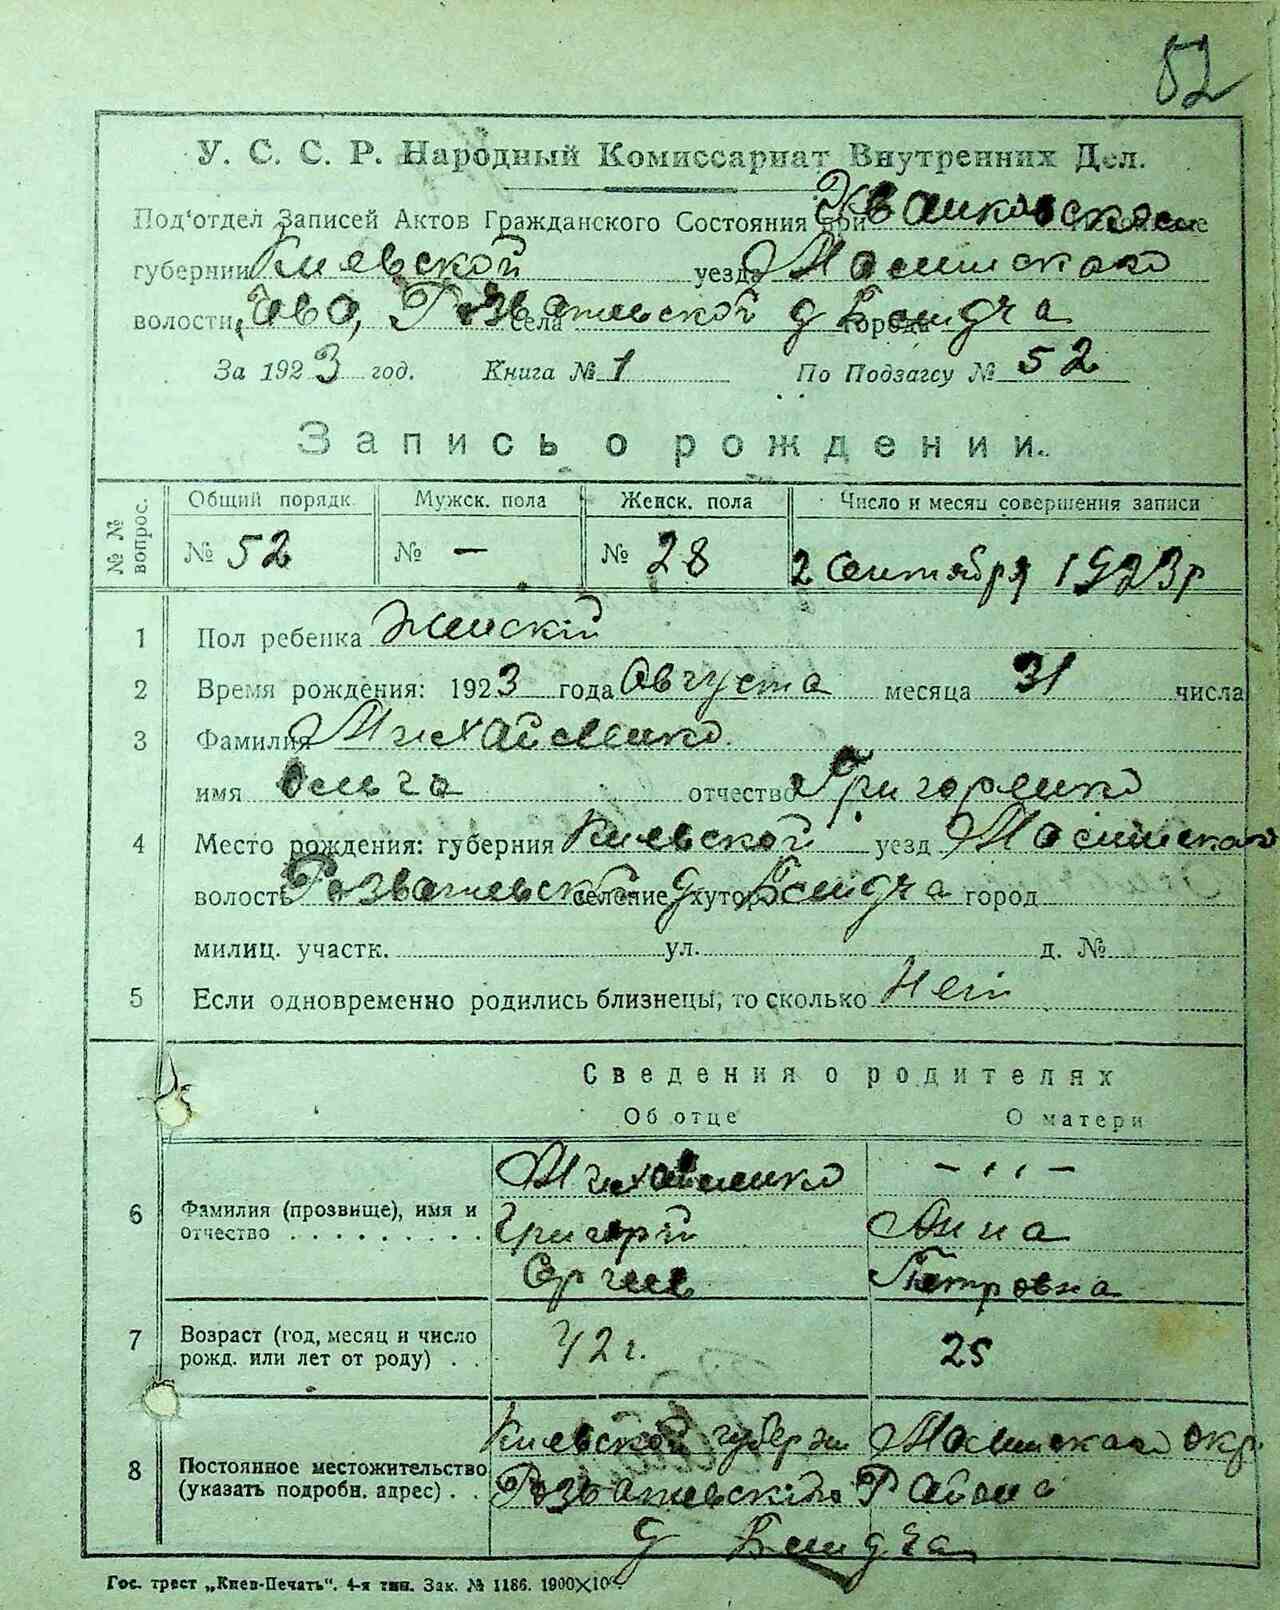 52
У. С. С. Р. Народный Комиссариат Внутренних Дел.
Под'отдел Записей Актов Гражданского Состояния при
губернии Киевской уезда
волости, села города
За 1923 год. Книга № 1 По Подзагсу № 52
Запись о рождении.
№№ вопрос. Общий порядк. Мужск. пола Женск. пола Число и месяц совершения записи
№ 52 № — № 28 2 Сентября 1923 р
1 Пол ребенка женскій
2 Время рождения: 1923 года Августа месяца 31 числа
3 Фамилия Михайленко
имя Ольга отчество
4 Место рождения: губерния Киевской уезд
волость селение хутор город
милиц. участк. ул. д. №
5 Если одновременно родились близнецы, то сколько Нет
Сведения о родителях
Об отце О матери
6 Фамилия (прозвище), имя и отчество
Михайленко — „ —
Григорій Анна
Петровна
7 Возраст (год, месяц и число рожд. или лет от роду) . . 42 г. 25
8 Постоянное местожительство (указать подробн. адрес) . .
Киевской губерни окр.
Района
д
Гос. трест „Киев-Печать". 4-я тип. Зак. № 1186. 1900×10